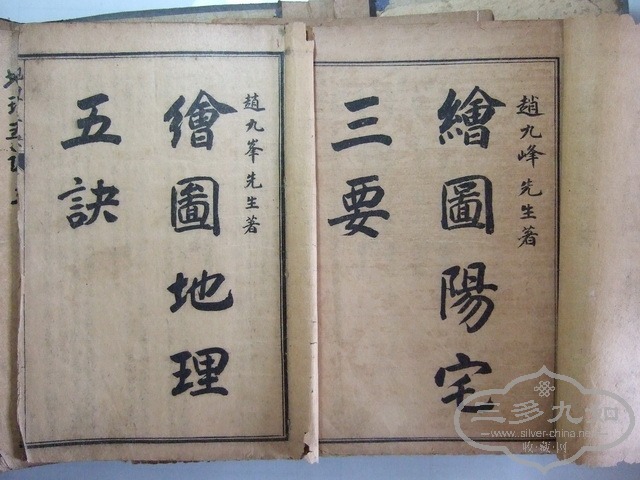 趙九峰先生著
繪圖陽宅
三要
趙九峯先生著
繪圖地理
五訣
三多九如
www.silver-china.net
收·藏·网